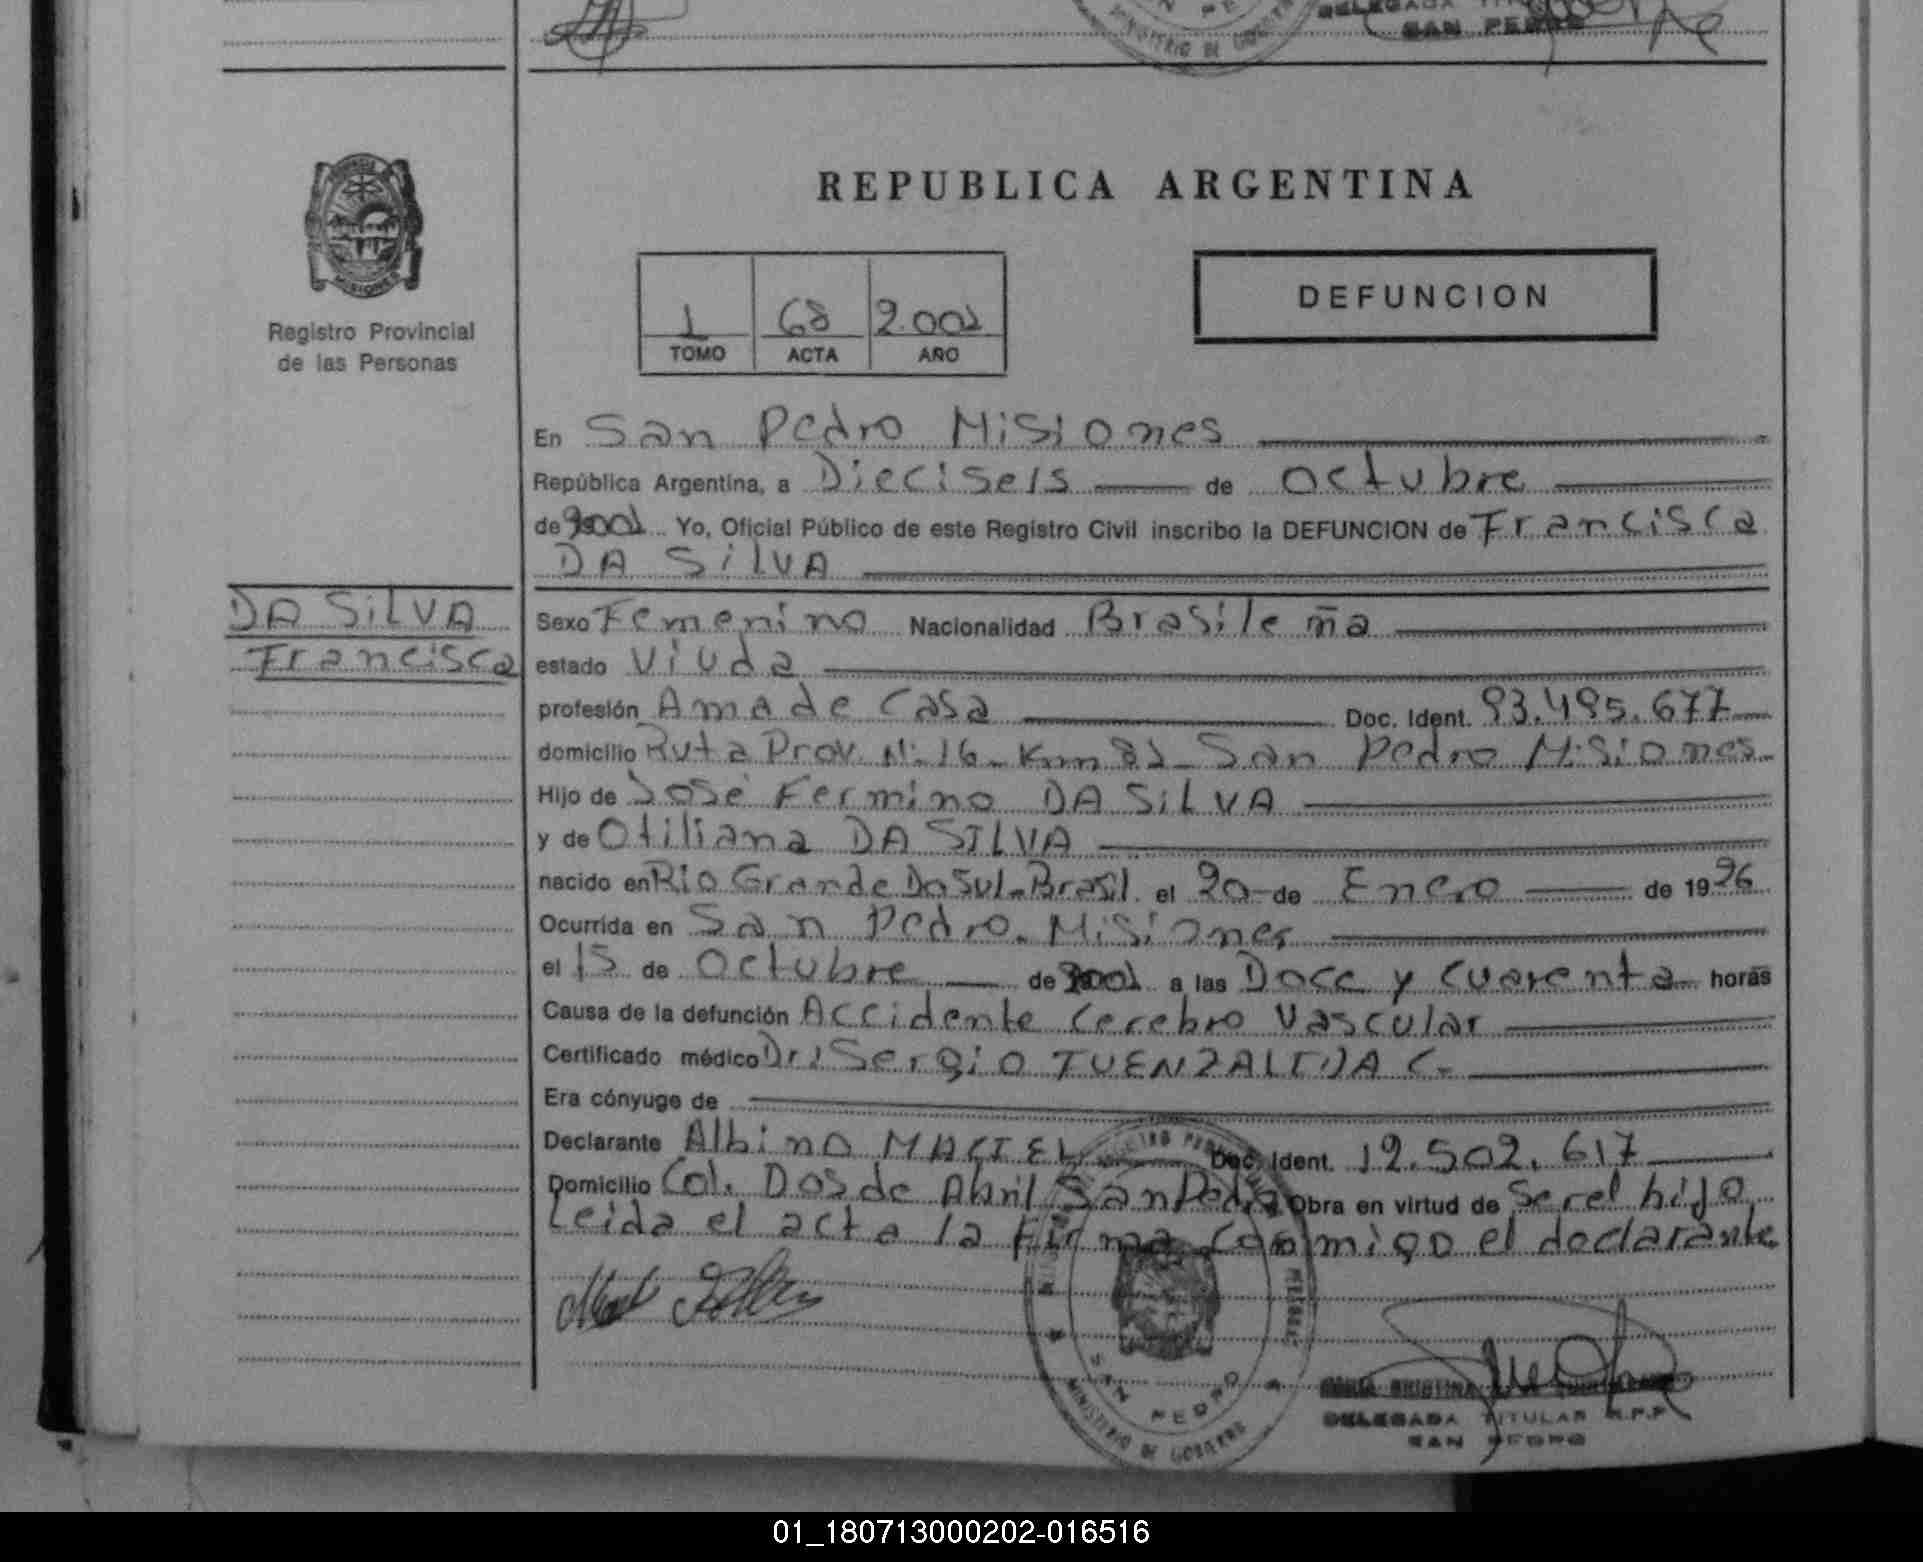 MINISTERIO DE GOBIERNO
DELEGADA TITULAR
SAN PEDRO
MISIONES
REPUBLICA ARGENTINA
Registro Provincial
de las Personas
1 68 2.001
TOMO ACTA AÑO
DEFUNCION
En San Pedro Misiones
República Argentina, a Dieciseis de octubre
de 2001 Yo, Oficial Público de este Registro Civil inscribo la DEFUNCION de Francisca
DA SILVA
DA SILVA
Francisca
Sexo Femenino Nacionalidad Brasileña
estado Viuda
profesión Ama de Casa Doc. Ident. 93.495.677
domicilio Ruta Prov. N: 16 - Km 81 - San Pedro Misiones-
Hijo de José Fermino DA SILVA
y de Otiliana DA SILVA
nacido en Rio Grande Do Sul - Brasil el 20 de Enero de 1926
Ocurrida en San Pedro - Misiones
el 15 de Octubre de 2001 a las Doce y cuarenta horas
Causa de la defunción Accidente Cerebro Vascular
Certificado médico Dr: Sergio C.
Era cónyuge de
Declarante Albino MACIEL Doc. Ident. 12.502.617
Domicilio Col. Dos de Abril San Pedro Obra en virtud de Ser el hijo
Leida el acta la Firma Conmigo el declarante
SAN PEDRO
MINISTERIO DE GOBIERNO
DELEGADA TITULAR R.P.P.
SAN PEDRO
01_180713000202-016516